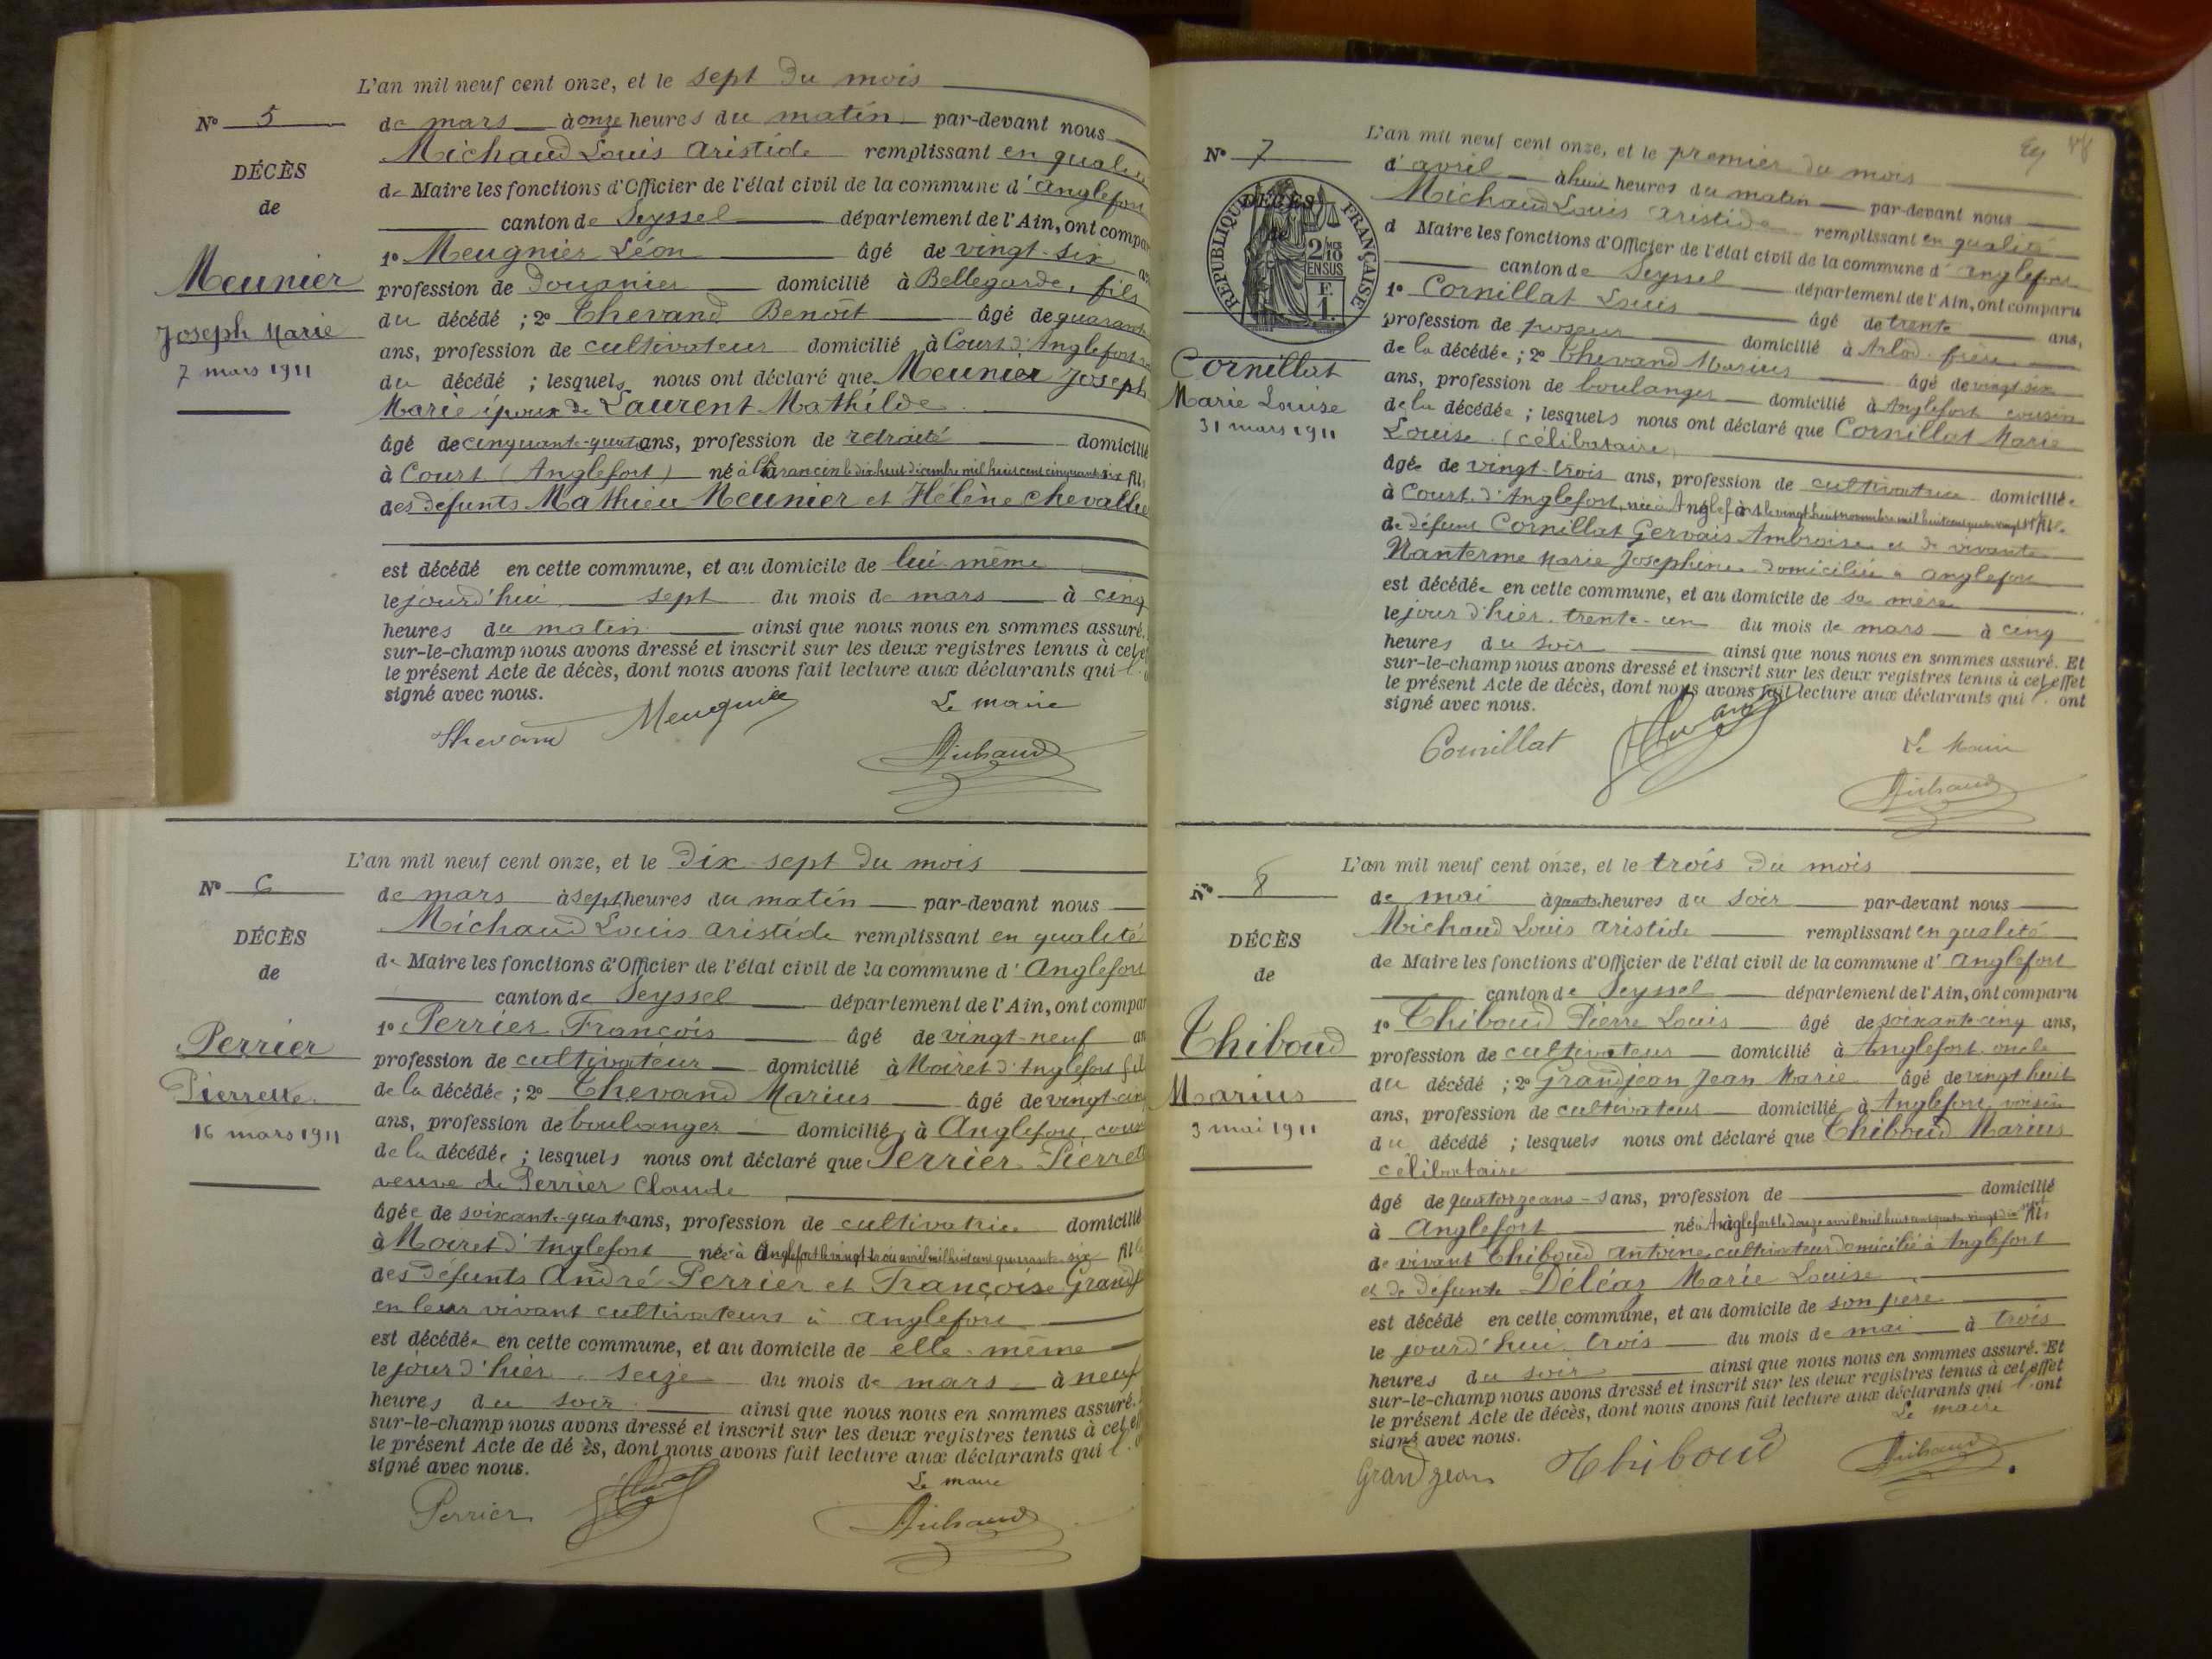 L'an mil neuf cent onze, et le sept du mois
N° 5
de mars à onze heures du matin par-devant nous
Michaud Louis Aristide remplissant en qualité
DÉCÈS
de Maire les fonctions d'Officier de l'état civil de la commune d' Anglefort
de
canton de Seyssel département de l'Ain, ont compa
1° Meugnier Léon âgé de vingt-six an
Meunier
profession de Douanier domicilié à Bellegarde, fils
du décédé ; 2° Thevand Benoît âgé de quarante
Joseph Marie
ans, profession de cultivateur domicilié à Court d'Anglefort
7 mars 1911
du décédé ; lesquels nous ont déclaré que Meunier Joseph
Marie époux de Laurent Mathilde
âgé de cinquante-quatre ans, profession de retraité domicilié
à Court (Anglefort) né à Charancin le dix huit décembre mil huit cent cinquante six fils
des défunts Mathieu Meunier et Hélène Chevallie
est décédé en cette commune, et au domicile de lui même
le jourd'hui sept du mois de mars à cinq
heures du matin ainsi que nous nous en sommes assuré.
sur-le-champ nous avons dressé et inscrit sur les deux registres tenus à cet ef
le présent Acte de décès, dont nous avons fait lecture aux déclarants qui l'
signé avec nous.
Le maire
Thevand Meugnier
Michaud
L'an mil neuf cent onze, et le dix-sept du mois
N° 6
de mars à sept heures du matin par-devant nous
Michaud Louis Aristide remplissant en qualité
DÉCÈS
de Maire les fonctions d'Officier de l'état civil de la commune d' Anglefort
de
canton de Seyssel département de l'Ain, ont compar
1° Perrier François âgé de vingt-neuf an
Perrier
profession de cultivateur domicilié à Moiret d'Anglefort fils
de la décédée ; 2° Thevand Marius âgé de vingt-cinq
Pierrette
ans, profession de boulanger domicilié à Anglefort cous
16 mars 1911
de la décédée ; lesquels nous ont déclaré que Perrier Pierrette
veuve de Perrier Claude
âgée de soixante-quatre ans, profession de cultivatrice domicilié
à Moiret d'Anglefort née à Anglefort le vingt trois avril mil huit cent quarante-six fille
des défunts André Perrier et Françoise Grandj
en leur vivant cultivateurs à Anglefort
est décédée en cette commune, et au domicile de elle-même
le jour d'hier seize du mois de mars à neuf
heures du soir ainsi que nous nous en sommes assuré.
sur-le-champ nous avons dressé et inscrit sur les deux registres tenus à cet ef
le présent Acte de dé ès, dont nous avons fait lecture aux déclarants qui l'
signé avec nous.
Le maire
Perrier
Michaud
L'an mil neuf cent onze, et le premier du mois
N° 7
d' avril à huit heures du matin par-devant nous
Michaud Louis Aristide remplissant en qualité
DÉCÈS
de
RÉPUBLIQUE FRANÇAISE
2/10 EN SUS
F. 1.
d Maire les fonctions d'Officier de l'état civil de la commune d' Anglefort
canton de Seyssel département de l'Ain, ont comparu
1° Cornillat Louis âgé de trente ans,
profession de poseur domicilié à Arlod frère
Cornillat
de la décédée ; 2° Thevand Marius âgé de vingt six
ans, profession de boulanger domicilié à Anglefort cousin
Marie Louise
de la décédée ; lesquels nous ont déclaré que Cornillat Marie
31 mars 1911
Louise (célibataire)
âgée de vingt-trois ans, profession de cultivatrice domiciliée
à Court d'Anglefort, née à Anglefort le vingt huit novembre mil huit cent quatre vingt fille
de défunt Cornillat Gervais Ambroise et de vivante
Nanterme Marie Josephine domiciliée à Anglefort
est décédée en cette commune, et au domicile de sa mère
le jour d'hier trente-un du mois de mars à cinq
heures du soir ainsi que nous nous en sommes assuré. Et
sur-le-champ nous avons dressé et inscrit sur les deux registres tenus à cet effet
le présent Acte de décès, dont nous avons fait lecture aux déclarants qui l' ont
signé avec nous.
Cornillat
Le Maire
Michaud
L'an mil neuf cent onze, et le trois du mois
N° 8
de mai à quatre heures du soir par-devant nous
Michaud Louis Aristide remplissant en qualité
DÉCÈS
de Maire les fonctions d'Officier de l'état civil de la commune d' Anglefort
de
canton de Seyssel département de l'Ain, ont comparu
1° Thiboud Pierre Louis âgé de soixante-cinq ans,
Thiboud
profession de cultivateur domicilié à Anglefort oncle
du décédé ; 2° Grandjean Jean Marie âgé de vingt huit
Marius
ans, profession de cultivateur domicilié à Anglefort voisin
3 mai 1911
du décédé ; lesquels nous ont déclaré que Thiboud Marius
célibataire
âgé de quatorze ans - sans, profession de domicilié
à Anglefort né à Anglefort le douze avril mil huit cent quatre vingt dix sept fils
de vivant Thiboud Antoine, cultivateur domicilié à Anglefort
et de défunte Déléaz Marie Louise
est décédé en cette commune, et au domicile de son père
le jourd'hui trois du mois de mai à trois
heures du soir ainsi que nous nous en sommes assuré. Et
sur-le-champ nous avons dressé et inscrit sur les deux registres tenus à cet effet
le présent Acte de décès, dont nous avons fait lecture aux déclarants qui l' ont
signé avec nous.
Le maire
Grandjean Thiboud
Michaud